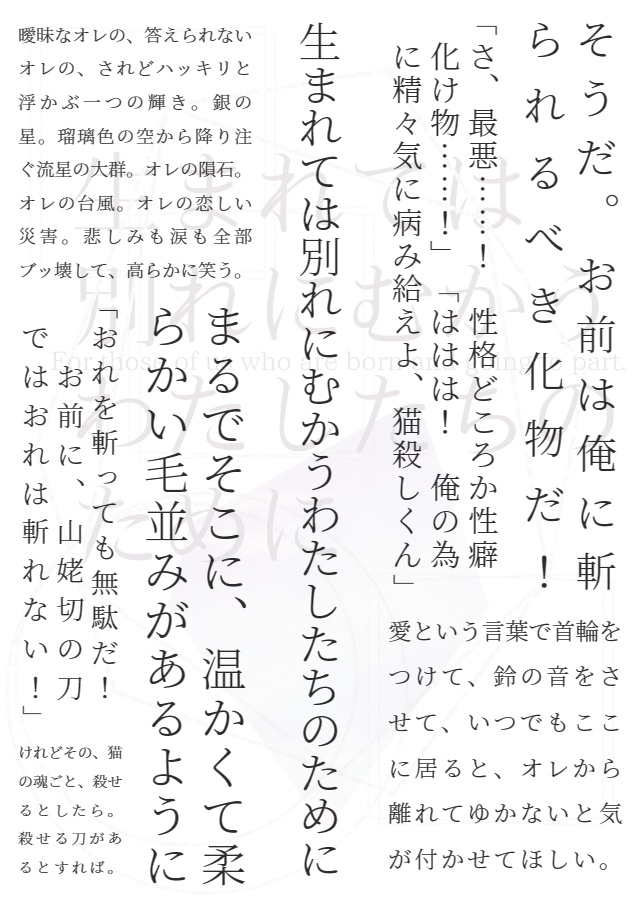 そうだ。お前は俺に斬
られるべき化物だ！
「さ、最悪……！　性格どころか性癖
化け物……！」「ははは！　俺の為
に精々気に病み給えよ、猫殺しくん」
愛という言葉で首輪を
つけて、鈴の音をさ
せて、いつでもここ
に居ると、オレから
離れてゆかないと気
が付かせてほしい。
生まれては別れにむかうわたしたちのために
曖昧なオレの、答えられない
オレの、されどハッキリと
浮かぶ一つの輝き。銀の
星。瑠璃色の空から降り注
ぐ流星の大群。オレの隕石。
オレの台風。オレの恋しい
災害。悲しみも涙も全部
ブッ壊して、高らかに笑う。
まるでそこに、温かくて柔
らかい毛並みがあるように
「おれを斬っても無駄だ！
お前に、山姥切の刀
ではおれは斬れない！」
けれどその、猫
の魂ごと、殺せ
るとしたら。
殺せる刀があ
るとすれば。
生まれては
別れにむかう
For those of us who are born and going to part.
わたしたちの
ために